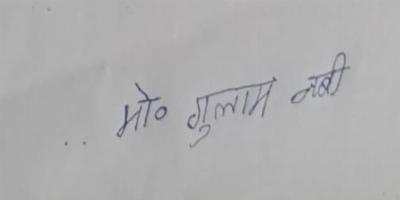 मो० गुलाम नबी